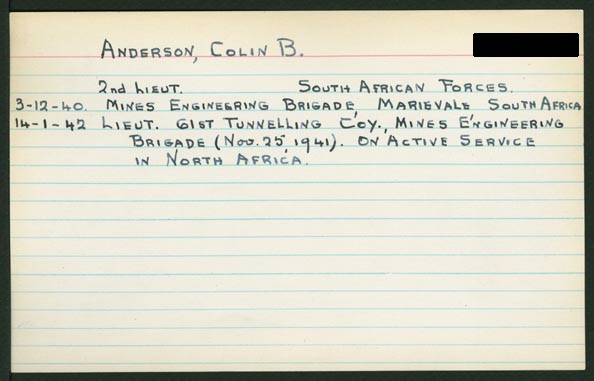 ANDERSON, COLIN B.
2nd LIEUT. SOUTH AFRICAN FORCES.
3-12-40. MINES ENGINEERING BRIGADE, MARIEVALE SOUTH AFRICA
14-1-42 LIEUT. 61ST TUNNELLING C'OY., MINES ENGINEERING
BRIGADE (NOV. 25, 1941). ON ACTIVE SERVICE
IN NORTH AFRICA.